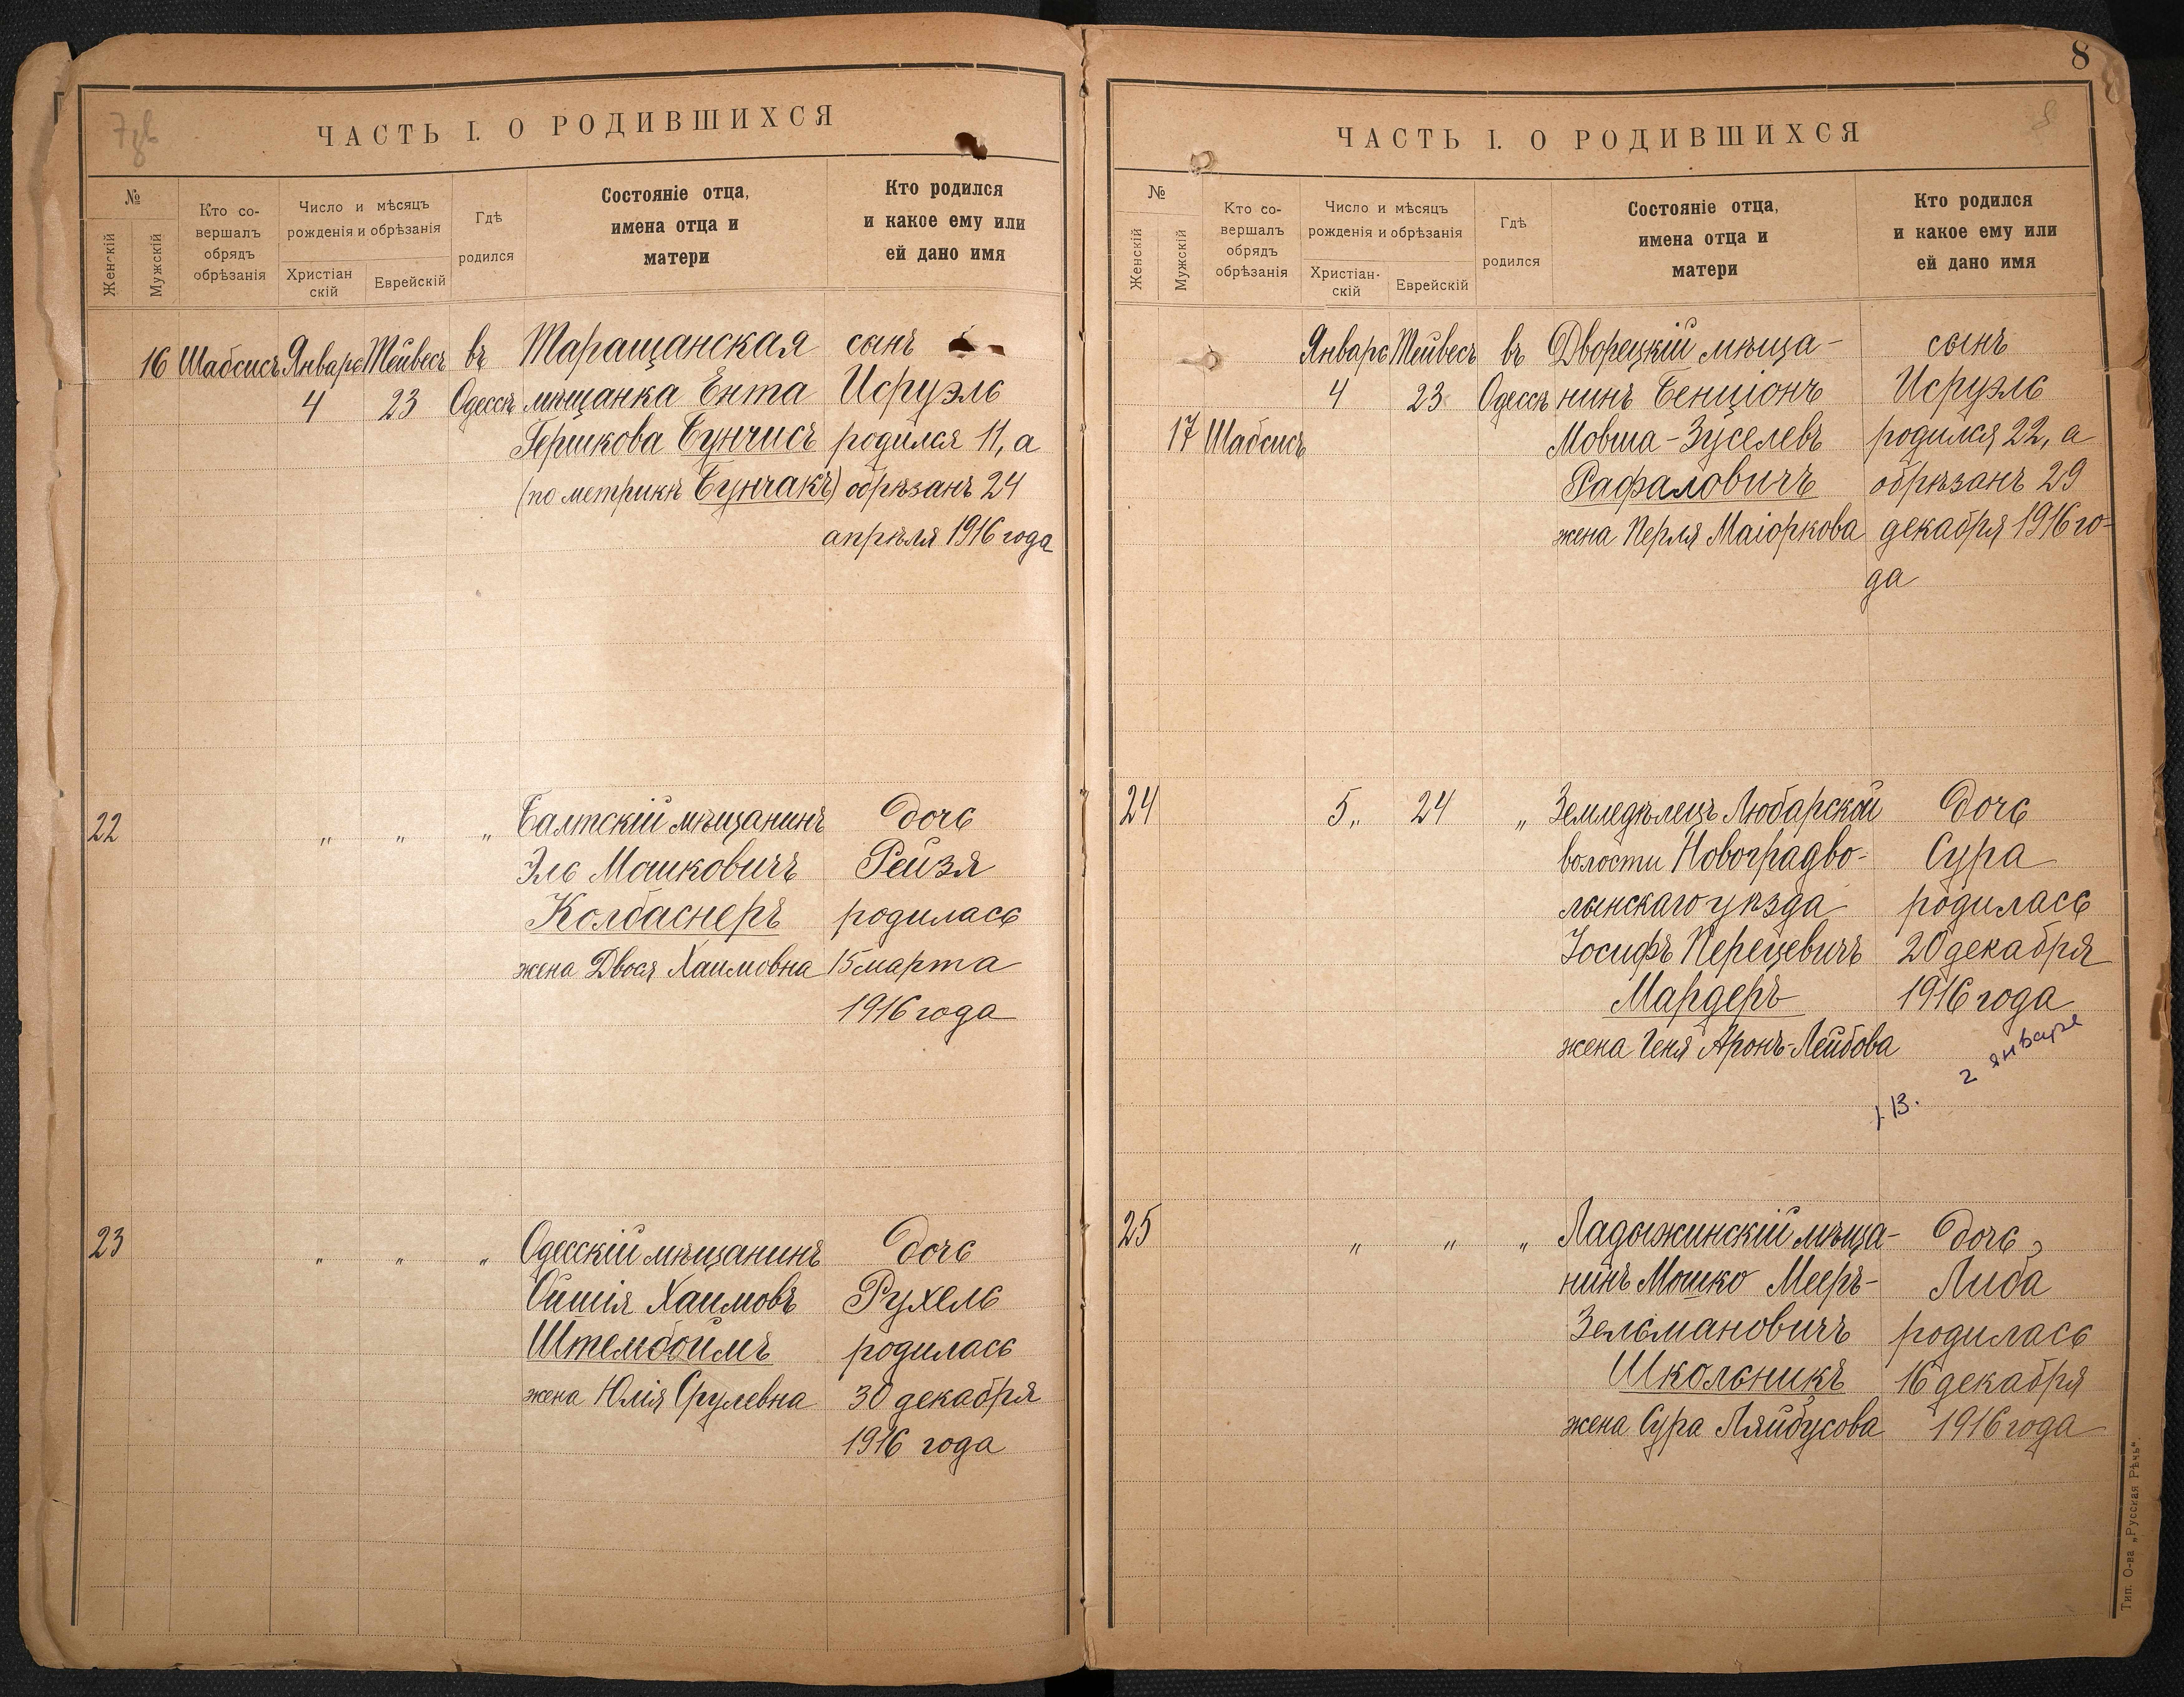 ЧАСТЬ I. О РОДИВШИХСЯ
№
Женскій
Мужскій
Кто со-
вершалъ
обрядъ
обрѣзанія
Число и мѣсяцъ
рожденія и обрѣзанія
Христіан
скій
Еврейскій
Гдѣ
родился
Состояніе отца,
имена отца и
матери
Кто родился
и какое ему или
ей дано имя
16 Шабсисъ Январь Тейвесъ въ Таращанская сынъ
4 23 Одессѣ мѣщанка Ента Исруэль
Гершкова Бунчисъ родился 11, а
(по метрикѣ Бунчакъ) обрѣзанъ 24
апрѣля 1916 года
22 „ „ „ Балтскій мѣщанинъ дочь
Эль Мошковичъ Рейзя
Колбаснеръ родилась
жена Двося Хаимовна 15 марта
1916 года
23 „ „ „ Одесскій мѣщанинъ дочь
Ойшія Хаимовъ Рухель
Штембоимъ родилась
жена Юлія Срулевна 30 декабря
1916 года
8
ЧАСТЬ I. О РОДИВШИХСЯ
№
Женскій
Мужскій
Кто со-
вершалъ
обрядъ
обрѣзанія
Число и мѣсяцъ
рожденія и обрѣзанія
Христіан-
скій
Еврейскій
Гдѣ
родился
Состояніе отца,
имена отца и
матери
Кто родился
и какое ему или
ей дано имя
Январь Тейвесъ въ Дворецкій мѣща- сынъ
4 23 Одессѣ нинъ Бенціонъ Исруэль
17 Шабсисъ Мовша-Зуселевъ родился 22, а
Рафаловичъ обрѣзанъ 29
жена Перля Маіоркова декабря 1916 го-
да
24 5 „ 24 „ Земледѣлецъ Любарской дочь
волости Новоградво- Сура
лынскаго уѣзда родилась
Іосифъ Перецевичъ 20 декабря
Мардеръ 1916 года
жена Геня Аронъ-Лейбова
2 январе
25 „ „ „ Ладыжинскій мѣща- дочь
нинъ Мошко Мееръ- Либа
Зельмановичъ родилась
Школьникъ 16 декабря
жена Сура Ляйбусова 1916 года
Тип. О-ва „Русская Рѣчь".